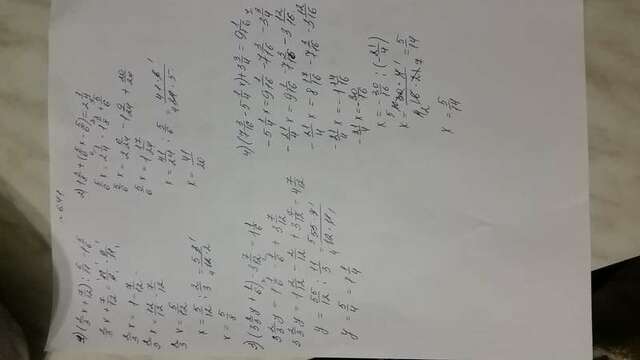 № 641
1) (2/3 x + 7/12) : 6/11 = 1 5/6
2/3 x + 7/12 = 11/6 · 6/11
2/3 x = 1 - 7/12
2/3 x = 12/12 - 7/12
2/3 x = 5/12
x = 5/12 : 2/3 = 5·3/12·2
x = 5/8
5/6 x = 1 17/24
x = 41/24 : 5/6 = 41·6/24·5
x = 41/20
3) (3 2/3 y + 1/6) - 3 7/12 = 1 1/6
3 2/3 y = 1 1/6 - 1/6 + 3 7/12
3 2/3 y = 1 2/12 - 2/12 + 3 7/12 = 4 7/12
y = 55/12 : 11/3 = 55·3/12·11
y = 5/4 = 1 1/4
4) (7 3/16 - 5 1/4 x) + 3 3/4 = 9 1/16
-5 1/4 x = 9 1/16 - 7 3/16 - 3 3/4
-21/4 x = 9 1/16 - 7 3/16 - 3 12/16
-21/4 x = 8 17/16 - 7 3/16 - 3 12/16
-21/4 x = -1 14/16
-21/4 x = -30/16
x = -30/16 : (-21/4)
x = 30·4/16·21 = 5/14
x = 5/14